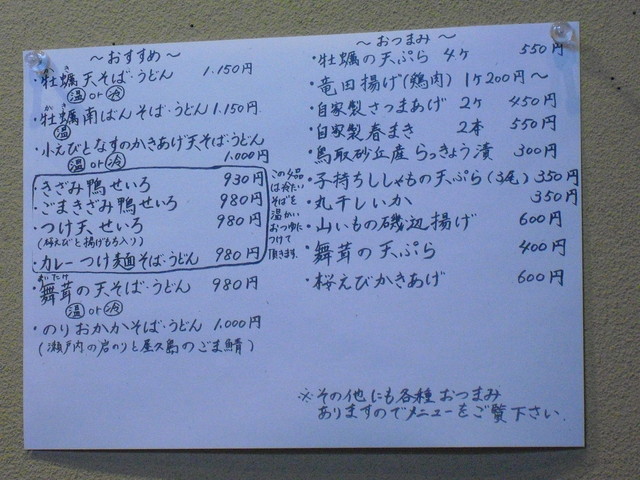 ～おすすめ～
かき
・牡蠣天そば・うどん 1.150円
温 or 冷
かき
・牡蠣南ばんそば・うどん 1.150円
温
・小えびとなすのかきあげ天そば・うどん
温 or 冷 1.000円
・きざみ鴨せいろ 930円
・ごまきざみ鴨せいろ 980円
・つけ天せいろ 980円
(桜えびと揚げもち入り)
・カレーつけ麺そば・うどん 980円
この4品
は冷たい
そばを
温かい
おつゆに
つけて
頂きます。
まいたけ
・舞茸の天そば・うどん 980円
温 or 冷
・のりおかかそば・うどん 1.000円
(瀬戸内の岩のりと屋久島のごま鯖)
～おつまみ～
・牡蠣の天ぷら 4ヶ 550円
・竜田揚げ(鶏肉) 1ヶ200円～
・自家製さつまあげ 2ヶ 450円
・自家製春まき 2本 550円
・鳥取砂丘産らっきょう漬 300円
・子持ちししゃもの天ぷら(3尾) 350円
・丸干しいか 350円
・山いもの磯辺揚げ 600円
・舞茸の天ぷら 400円
・桜えびかきあげ 600円
※その他にも各種おつまみ
ありますのでメニューをご覧下さい。